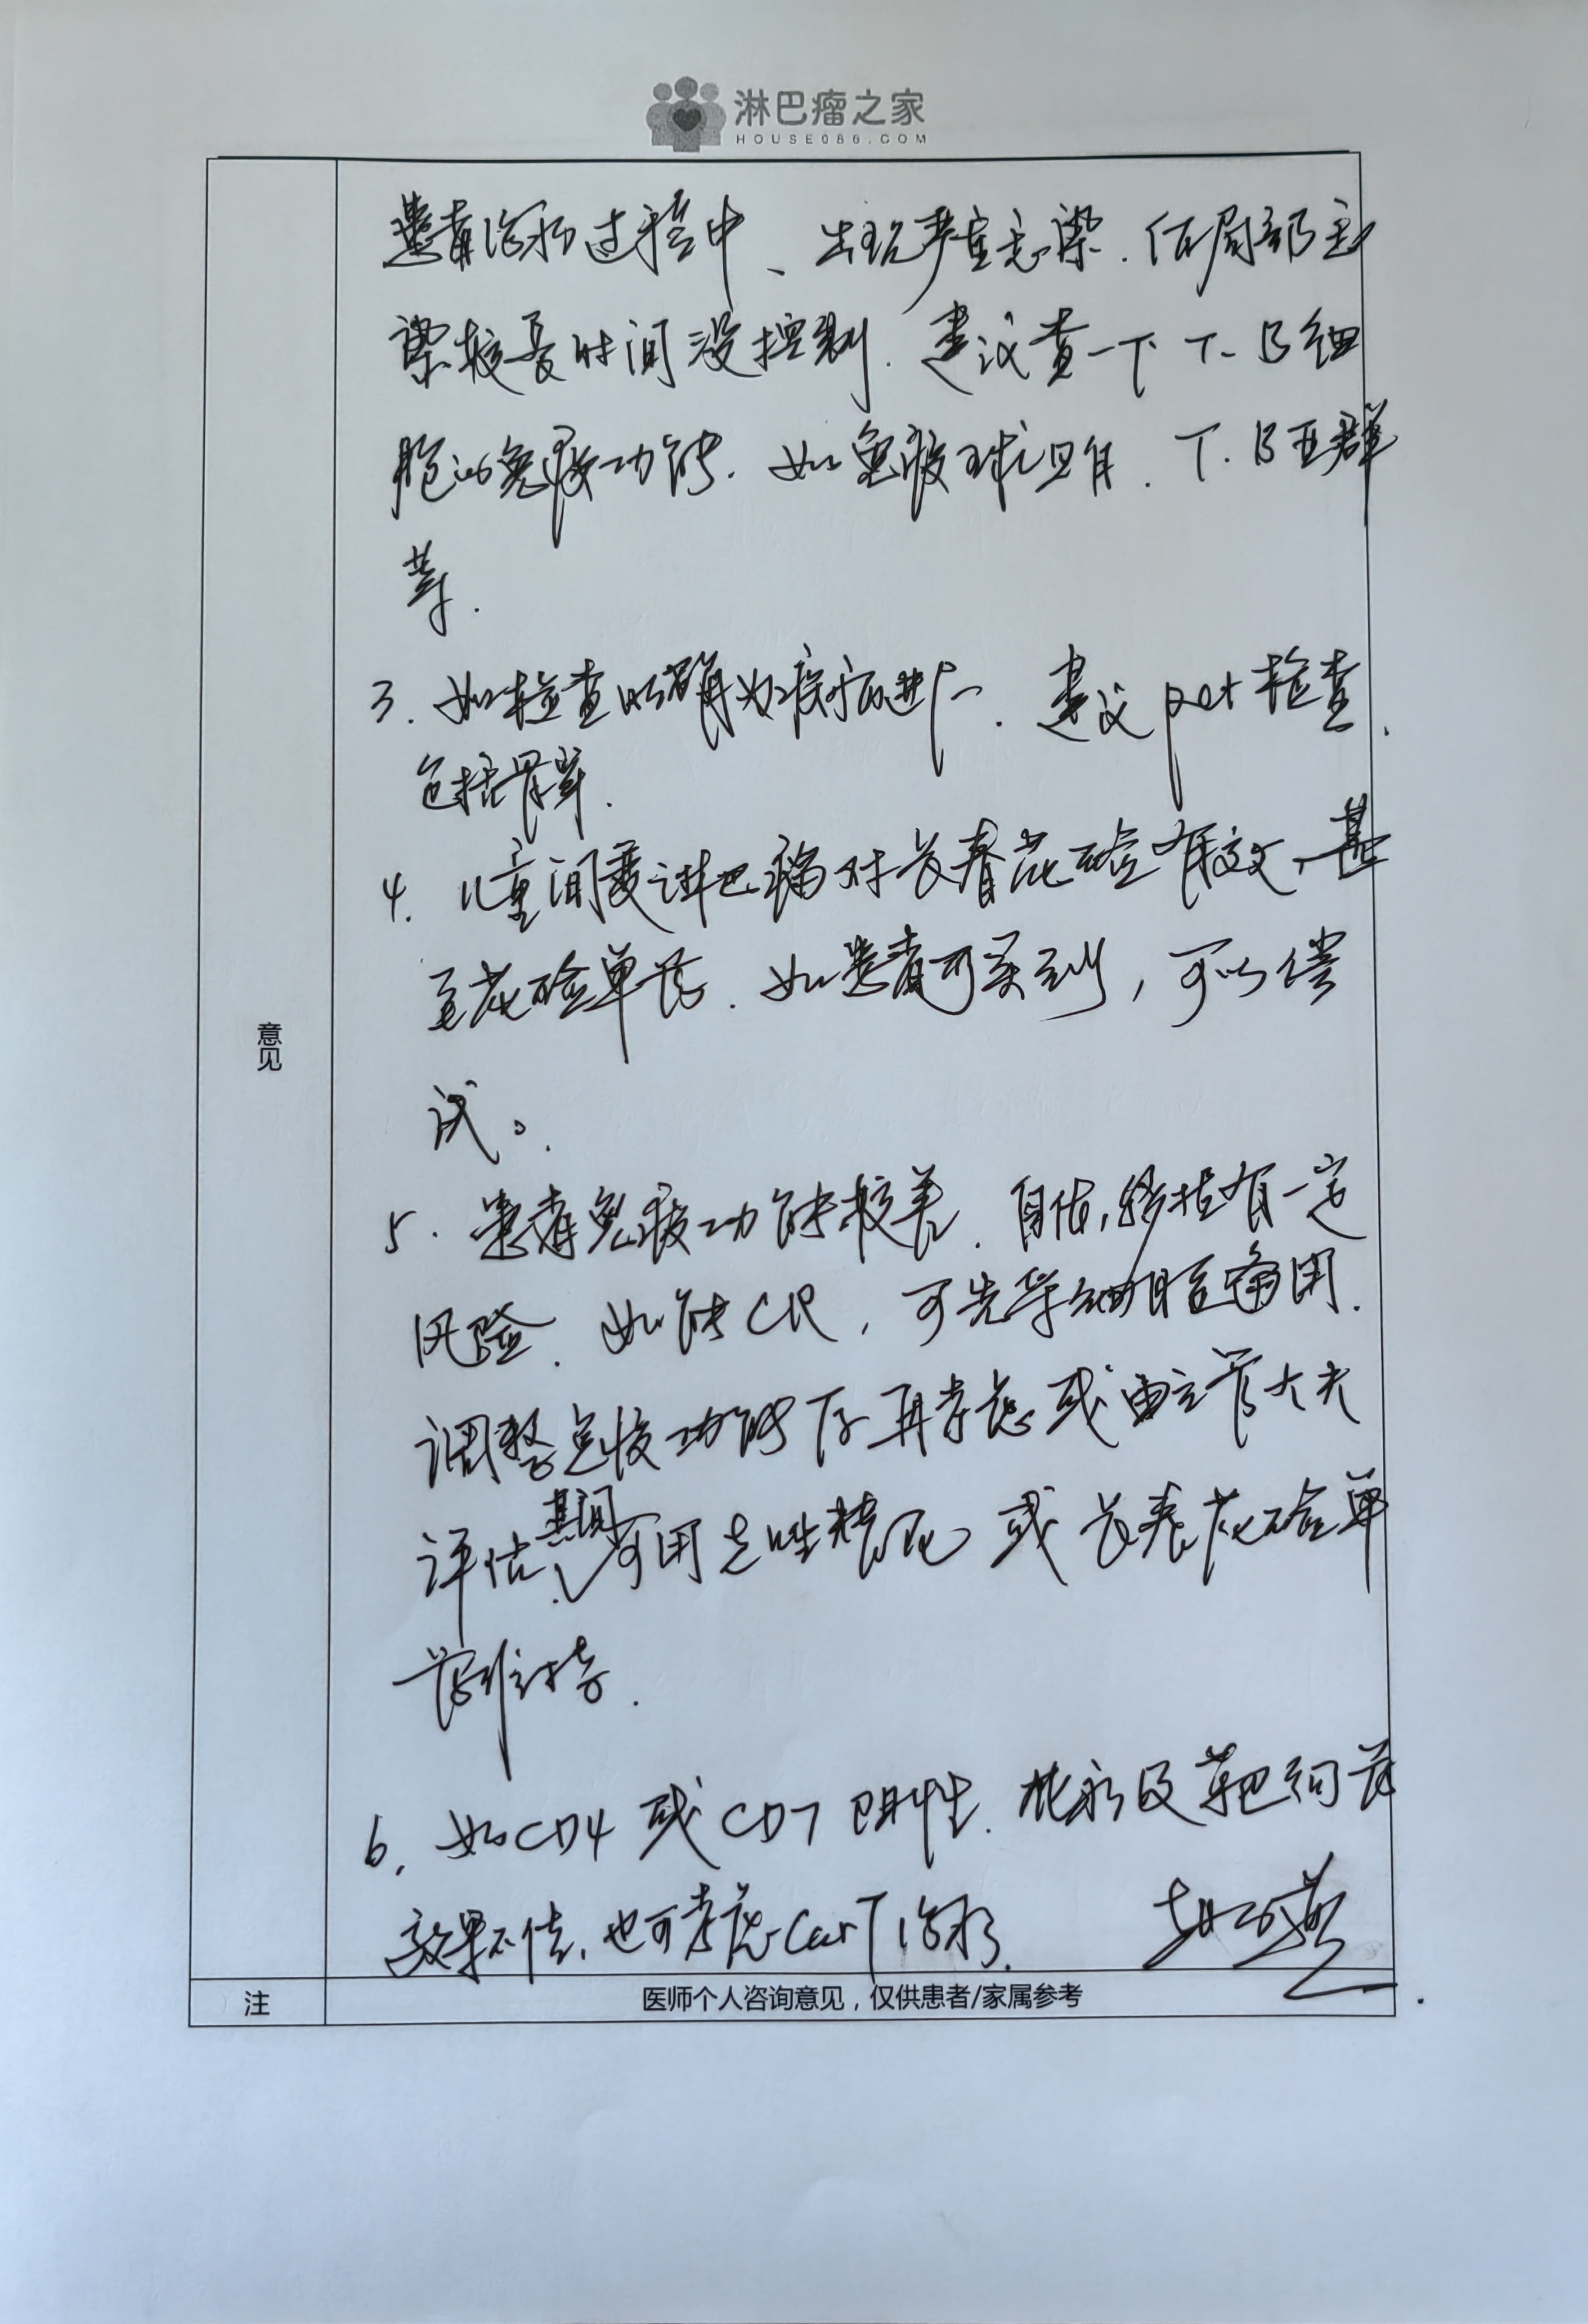 淋巴瘤之家
HOUSE086.COM
患者治疗过程中、出现严重感染.但局部感
染较长时间没控制.建议查一下T、B细
胞的免疫功能.如免疫球蛋白.T.B亚群
等.
3.如检查明确为疾病进展.建议pet检查.
包括骨髓.
4.儿童间变淋巴瘤对长春花碱有效,甚
至花碱单药.如患者可买到,可以尝
试。
5.患者免疫功能较差.自体,移植有一定
风险.如能CR,可先采细胞备用.
调整免疫功能后再考虑或由主管大夫
评估.期间可用克唑替尼或长春花碱单
药维持.
6.如CD4或CD7阳性.化疗及靶向药
效果不佳,也可考虑CarT治疗.
意见
注
医师个人咨询意见,仅供患者/家属参考